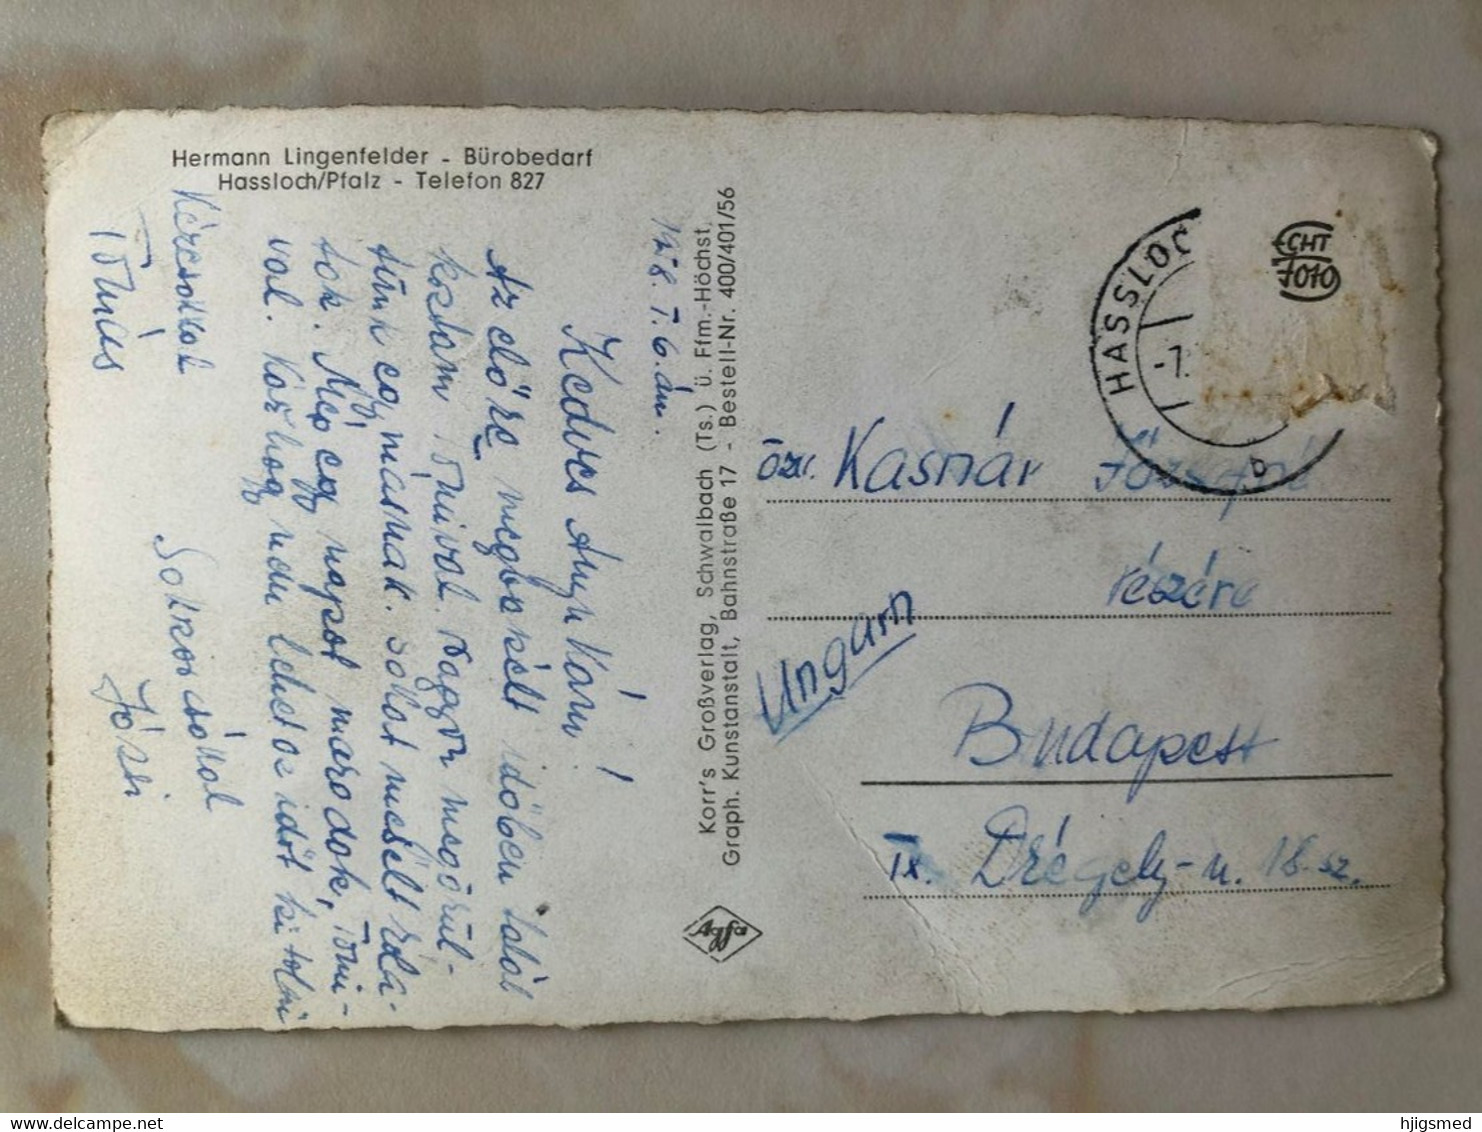 Hermann Lingenfelder - Bürobedarf
Hassloch/Pfalz - Telefon 827
Kedves Anyukám!
Az előre megbeszélt időben talál
koztam Tónival. Nagyon megörül-
tünk egymásnak. Sokat mesélt róla-
tok. Még egy napot maradok, Tóni-
val. Kár hogy nem lehet az időt ki tolni
Sokszor csókol
Józsi
Kézcsókkal
Tónus
Korr's Großverlag, Schwalbach (Ts.) ü. Ffm.-Höchst,
Graph. Kunstanstalt, Bahnstraße 17 - Bestell-Nr. 400/401/56
Agfa
ECHT
FOTO
HASSLOC
-7.
b
özv. Kasnár Józsefné
részére
Ungarn
Budapest
IX. Drégely-u. 18. sz.
© Delcampe.net
hjigsmed